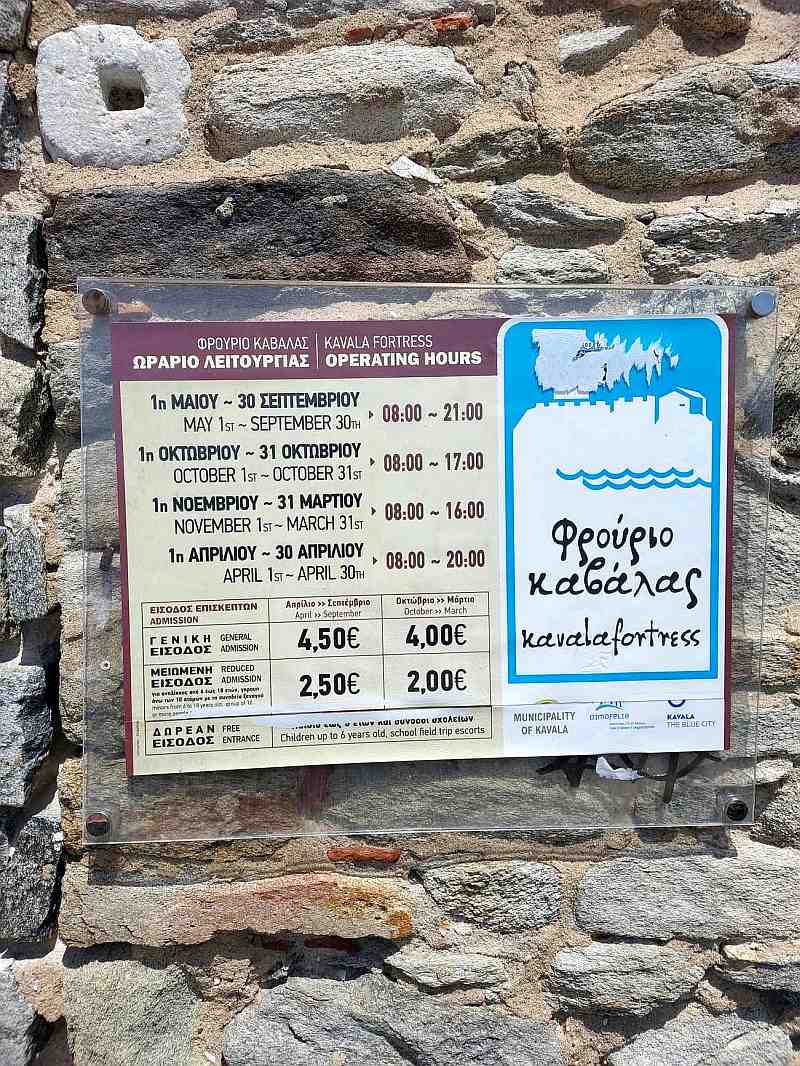 ΦΡΟΥΡΙΟ ΚΑΒΑΛΑΣ
ΩΡΑΡΙΟ ΛΕΙΤΟΥΡΓΙΑΣ
KAVALA FORTRESS
OPERATING HOURS
1η ΜΑΙΟΥ ~ 30 ΣΕΠΤΕΜΒΡΙΟΥ
MAY 1ST ~ SEPTEMBER 30TH
08:00 ~ 21:00
1η ΟΚΤΩΒΡΙΟΥ ~ 31 ΟΚΤΩΒΡΙΟΥ
OCTOBER 1ST ~ OCTOBER 31ST
08:00 ~ 17:00
1η ΝΟΕΜΒΡΙΟΥ ~ 31 ΜΑΡΤΙΟΥ
NOVEMBER 1ST ~ MARCH 31ST
08:00 ~ 16:00
1η ΑΠΡΙΛΙΟΥ ~ 30 ΑΠΡΙΛΙΟΥ
APRIL 1ST ~ APRIL 30TH
08:00 ~ 20:00
ΕΙΣΟΔΟΣ ΕΠΙΣΚΕΠΤΩΝ
ADMISSION
Απρίλιο >> Σεπτέμβριο
April >> September
Οκτώβριο >> Μάρτιο
October >> March
ΓΕΝΙΚΗ ΕΙΣΟΔΟΣ
GENERAL ADMISSION
4,50€
4,00€
ΜΕΙΩΜΕΝΗ ΕΙΣΟΔΟΣ
REDUCED ADMISSION
2,50€
2,00€
ΔΩΡΕΑΝ ΕΙΣΟΔΟΣ
FREE ENTRANCE
Children up to 6 years old, school field trip escorts
Φρούριο
καβάλας
kavala fortress
MUNICIPALITY
OF KAVALA
KAVALA
THE BLUE CITY